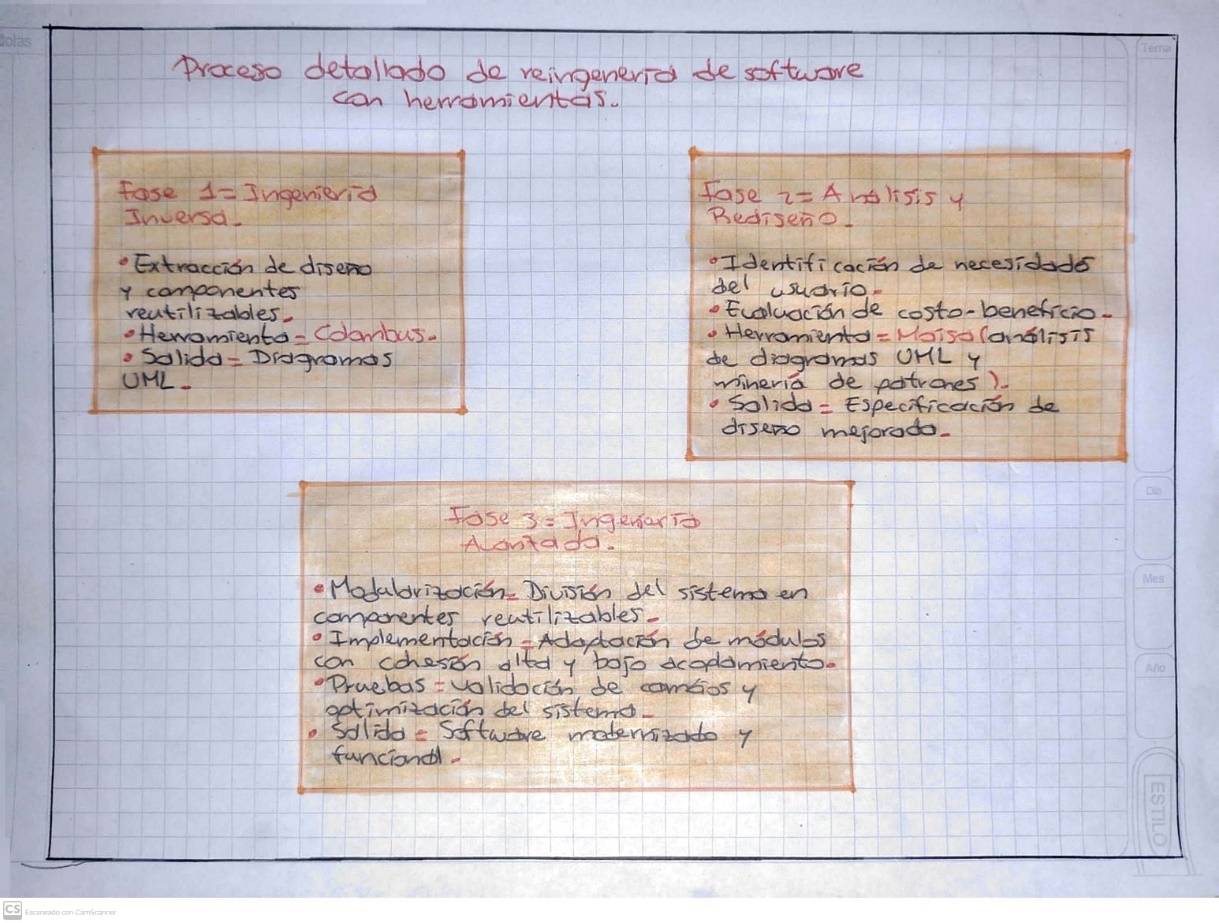 Notas
Tema
Proceso detallado de reingeneria de software
con herramientas.
Fase 1= Ingenieria
Inversa.
• Extracción de diseño
y componentes
reutilizables.
• Herramienta = Colombus.
• Salida = Diagramas
UML.
Fase 2= Análisis y
Rediseño.
• Identificación de necesidades
del usuario.
• Evaluación de costo-beneficio.
• Herramienta = Maisa (análisis
de diagramas UML y
minería de patrones).
• Salida = Especificación de
diseño mejorado.
Fase 3= Ingenieria
Avanzada.
• Modularización= División del sistema en
componentes reutilizables.
• Implementación = Adaptación de módulos
con cohesión alta y bajo acoplamiento.
• Pruebas = validación de cambios y
optimización del sistema.
• Salida = Software modernizado y
funcional.
Día
Mes
Año
ESTILO
CS Escaneado con CamScanner